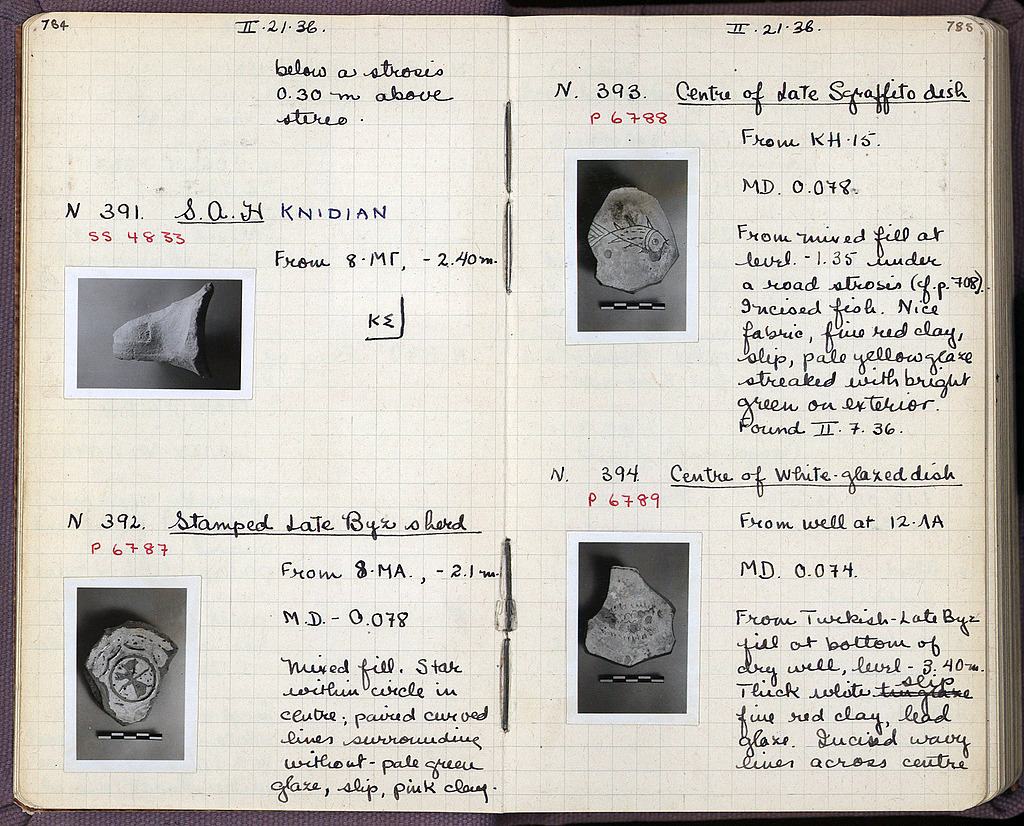 784
II·21·36.
below a strosis
0.30 m above
stereo.
N 391. S.A.H KNIDIAN
SS 4833
From 8·ΜΓ, -2.40m.
ΚΣ
N 392. Stamped Late Byz sherd
P 6787
From 8·ΜΑ., -2.1m.
M.D.- 0.078
Mixed fill. Star
within circle in
centre; paired curved
lines surrounding
without - pale green
glaze, slip, pink clay.
785
II·21·36.
N. 393. Centre of Late Sgraffito dish
P 6788
From ΚΗ·15.
MD. 0.078.
From mixed fill at
level -1.35 under
a road strosis (cf. p. 708).
Incised fish. Nice
fabric, fine red clay,
slip, pale yellow glaze
streaked with bright
green on exterior.
Found II.7.36.
N. 394. Centre of White-glazed dish
P 6789
From well at 12·ΛΑ
MD. 0.074.
From Turkish-Late Byz
fill at bottom of
dry well, level -3.40m.
slip
Thick white tin glaze
fine red clay, lead
glaze. Incised wavy
lines across centre